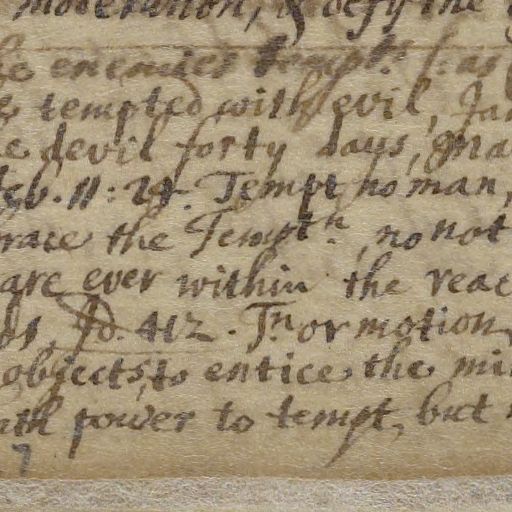 moderation, & defy the
enemies tempt: (as
tempted with evil, Ja
e devil forty days, Ma
eb. 11: 24. Tempt no man,
race the Temptn, no not
are ever within the reac
os, Id. 412. Tn or motion,
objects, to entice the mi
ath power to tempt, but
7